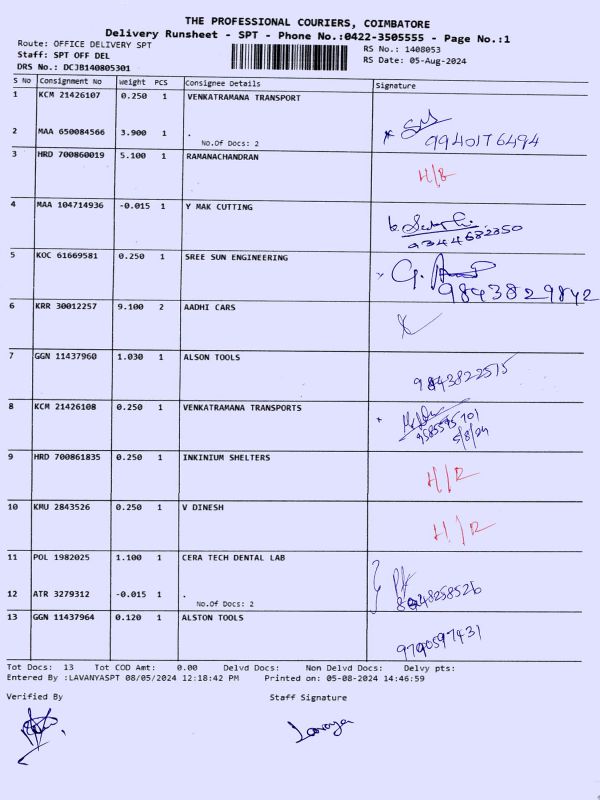 THE PROFESSIONAL COURIERS, COIMBATORE
Delivery Runsheet - SPT - Phone No.:0422-3505555 - Page No.:1
Route: OFFICE DELIVERY SPT
RS No.: 1408053
Staff: SPT OFF DEL
RS Date: 05-Aug-2024
DRS No.: DCJB140805301
S No Consignment No Weight PCS Consignee Details Signature
1 KCM 21426107 0.250 1 VENKATRAMANA TRANSPORT
2 MAA 650084566 3.900 1 .
No.Of Docs: 2
9940176494
3 HRD 700860019 5.100 1 RAMANACHANDRAN
4 MAA 104714936 -0.015 1 Y MAK CUTTING
9344682350
5 KOC 61669581 0.250 1 SREE SUN ENGINEERING
9843829842
6 KRR 30012257 9.100 2 AADHI CARS
7 GGN 11437960 1.030 1 ALSON TOOLS
9843822515
8 KCM 21426108 0.250 1 VENKATRAMANA TRANSPORTS
5/8/24
9 HRD 700861835 0.250 1 INKINIUM SHELTERS
H/R
10 KMU 2843526 0.250 1 V DINESH
H/R
11 POL 1982025 1.100 1 CERA TECH DENTAL LAB
12 ATR 3279312 -0.015 1 .
No.Of Docs: 2
13 GGN 11437964 0.120 1 ALSTON TOOLS
9790597431
Tot Docs: 13 Tot COD Amt: 0.00 Delvd Docs: Non Delvd Docs: Delvy pts:
Entered By :LAVANYASPT 08/05/2024 12:18:42 PM Printed on: 05-08-2024 14:46:59
Verified By Staff Signature
Lavanya